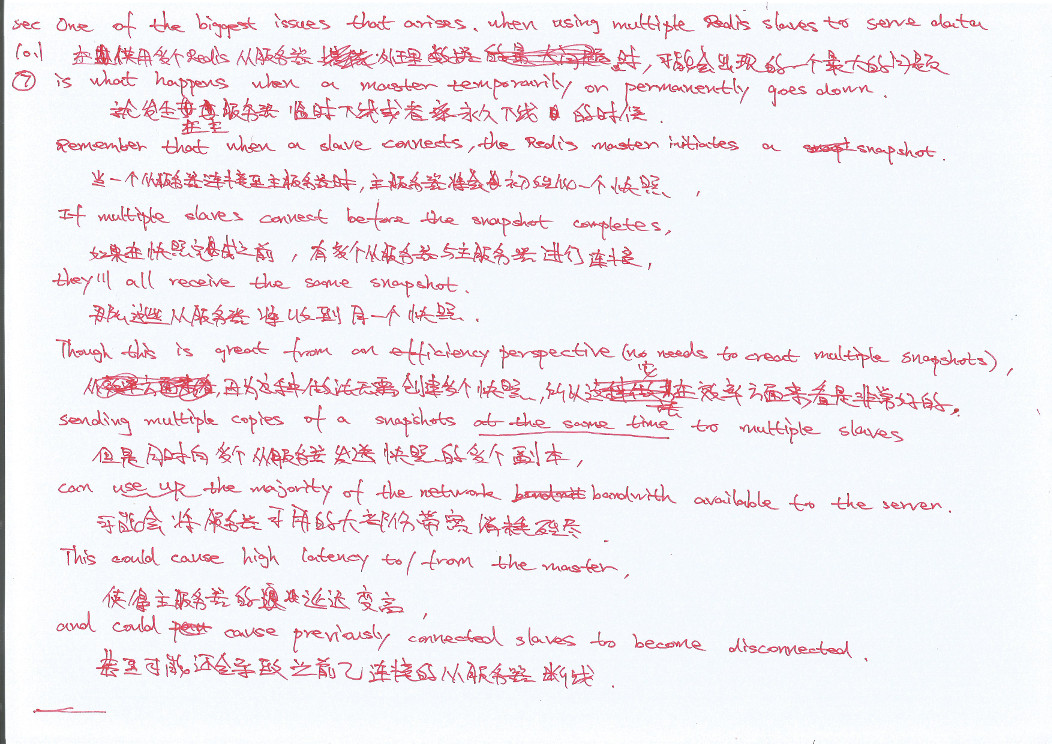 sec One of the biggest issues that arises. when using multiple Redis slaves to serve data
10.1 在使用多个Redis从服务器处理数据时，可能会出现的一个最大的问题
⑦ is what happens when a master temporarily or permanently goes down.
就是主服务器临时下线或者永久下线的时候.
Remember that when a slave connects, the Redis master initiates a snapshot.
当一个从服务器连接至主服务器时，主服务器将会初始化一个快照，
If multiple slaves connect before the snapshot completes,
如果在快照完成之前，有多个从服务器与主服务器进行连接，
they'll all receive the same snapshot.
那么这些从服务器将收到同一个快照.
Though this is great from an efficiency perspective (no needs to creat multiple snapshots),
因为这种做法无需创建多个快照，所以这在效率方面来看是非常好的，
sending multiple copies of a snapshots at the same time to multiple slaves
但是同时向多个从服务器发送快照的多个副本，
can use up the majority of the network bandwith available to the server.
可能会将服务器可用的大部份带宽消耗殆尽.
This could cause high latency to/from the master,
使得主服务器的延迟变高，
and could cause previously connected slaves to become disconnected.
甚至可能还会导致之前已连接的从服务器断线.